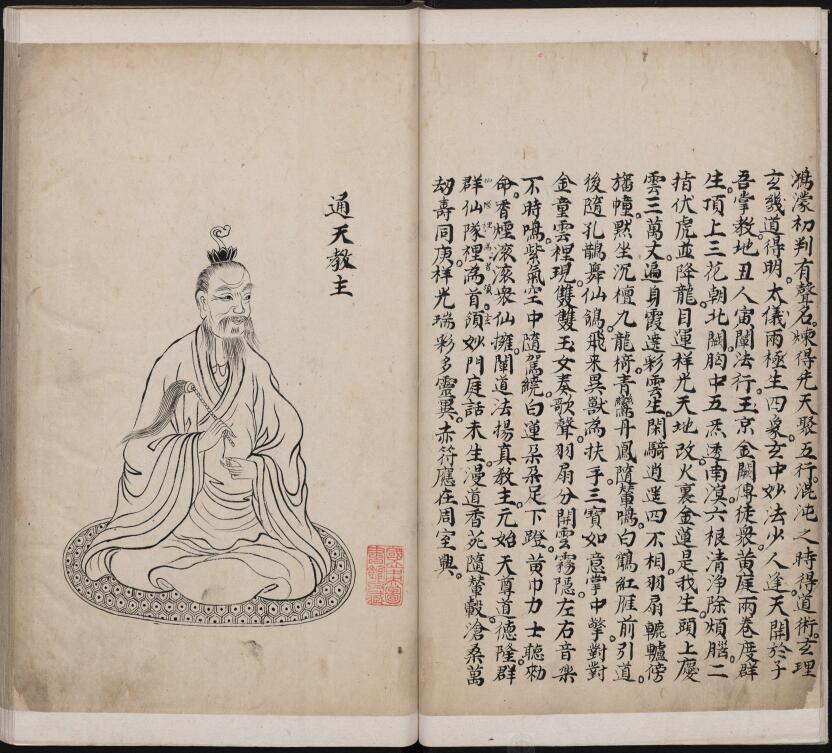 鴻濛初判有聲名。煉得先天聚五行。混沌之時得道術。玄理
玄幾道得明。太儀兩極生四象。玄中妙法少人逢。天開於子
吾掌教。地丑人寅闡法行。玉京金闕傳徒衆。黃庭兩卷度群
生。頂上三花朝北闕。胸中五炁透南溟。六根清淨除煩腦。二
指伏虎並降龍。目運祥光天地改。火裏金蓮是我生。頭上慶
雲三萬丈。遍身霞遶彩雲生。閑騎逍遥四不相。羽扇轆轤傍
旛幢。默坐沉檀九龍椅。青鸞丹鳳隨輦鳴。白鶴紅雁前引道
後隨孔鵲舞仙鴿。飛来異獸為扶手。三寶如意掌中擎。對對
金童雲裡現。雙雙玉女奏歌聲。羽扇分開雲霧隱。左右音樂
不時鳴。紫氣空中隨駕繞。白蓮朶朶足下蹬。黃巾力士聽勑
命。香煙滾滾衆仙擁。闡道法揚真教主。元始天尊道德隆。群
群仙隊裡為首領。玄妙門庭話未生。漫道香苑隨輦轂。滄桑萬
劫壽同庚。祥光瑞彩多靈異。赤符應在周室興。
通天教主